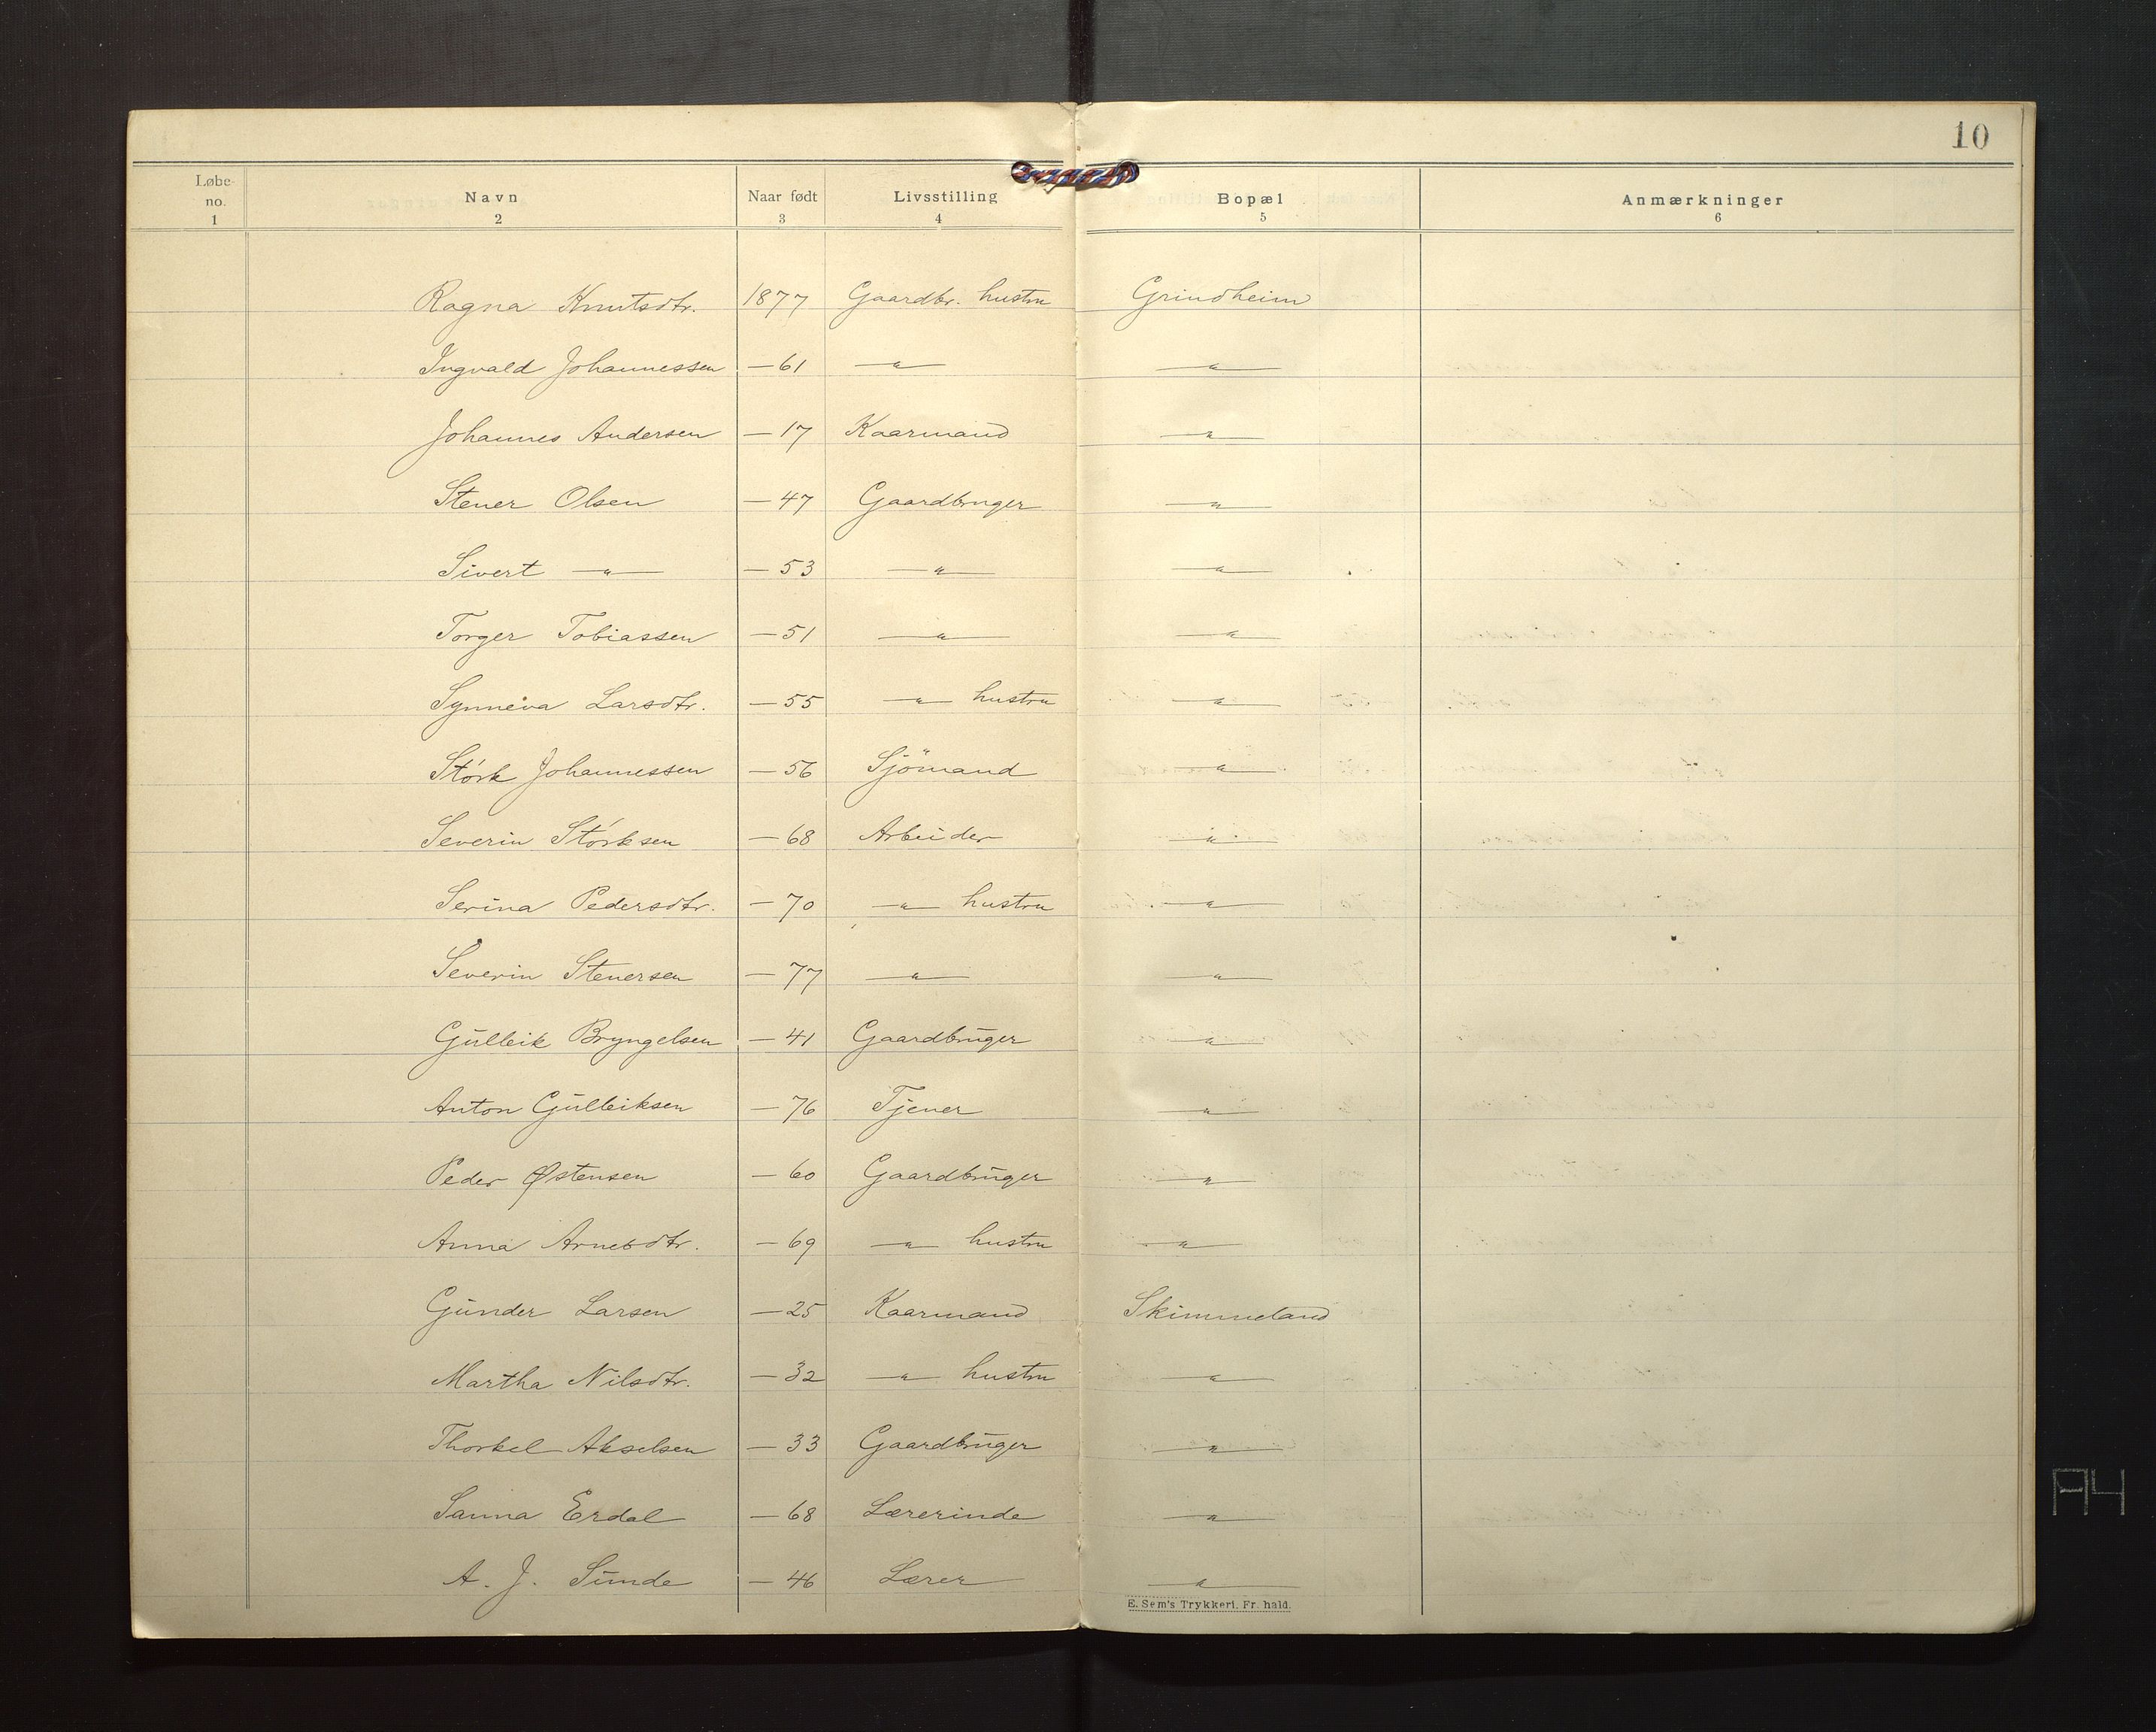 10
Løbe-no. Navn Naar født Livsstilling Bopæl Anmærkninger
1 2 3 4 5 6
Ragna Knutsdtr. 1877 Gaardbr. hustru Grindheim
Ingvald Johannessen — 61 —"— —"—
Johannes Andersen — 17 Kaarmand —"—
Stener Olsen — 47 Gaardbruger —"—
Sivert —"— — 53 —"— —"—
Torger Tobiassen — 51 —"— —"—
Synneva Larsdtr. — 55 —"— hustru —"—
Störk Johannessen — 56 Sjömand —"—
Severin Störksen — 68 Arbeider —"—
Serina Pedersdtr. — 70 —"— hustru —"—
Severin Stenersen — 77 —"— —"—
Gulleik Bryngelsen — 41 Gaardbruger —"—
Anton Gulleiksen — 76 Tjener —"—
Peder Østensen — 60 Gaardbruger —"—
Anna Arnesdtr. — 69 —"— hustru —"—
Gunder Larsen — 25 Kaarmand Skimmeland
Martha Nilsdtr. — 32 —"— hustru —"—
Thorkel Akselsen — 33 Gaardbruger —"—
Sanna Erdal — 68 Lærerinde —"—
A. J. Sunde — 46 Lærer —"—
E. Sem's Trykkeri. Fr. hald.
A4